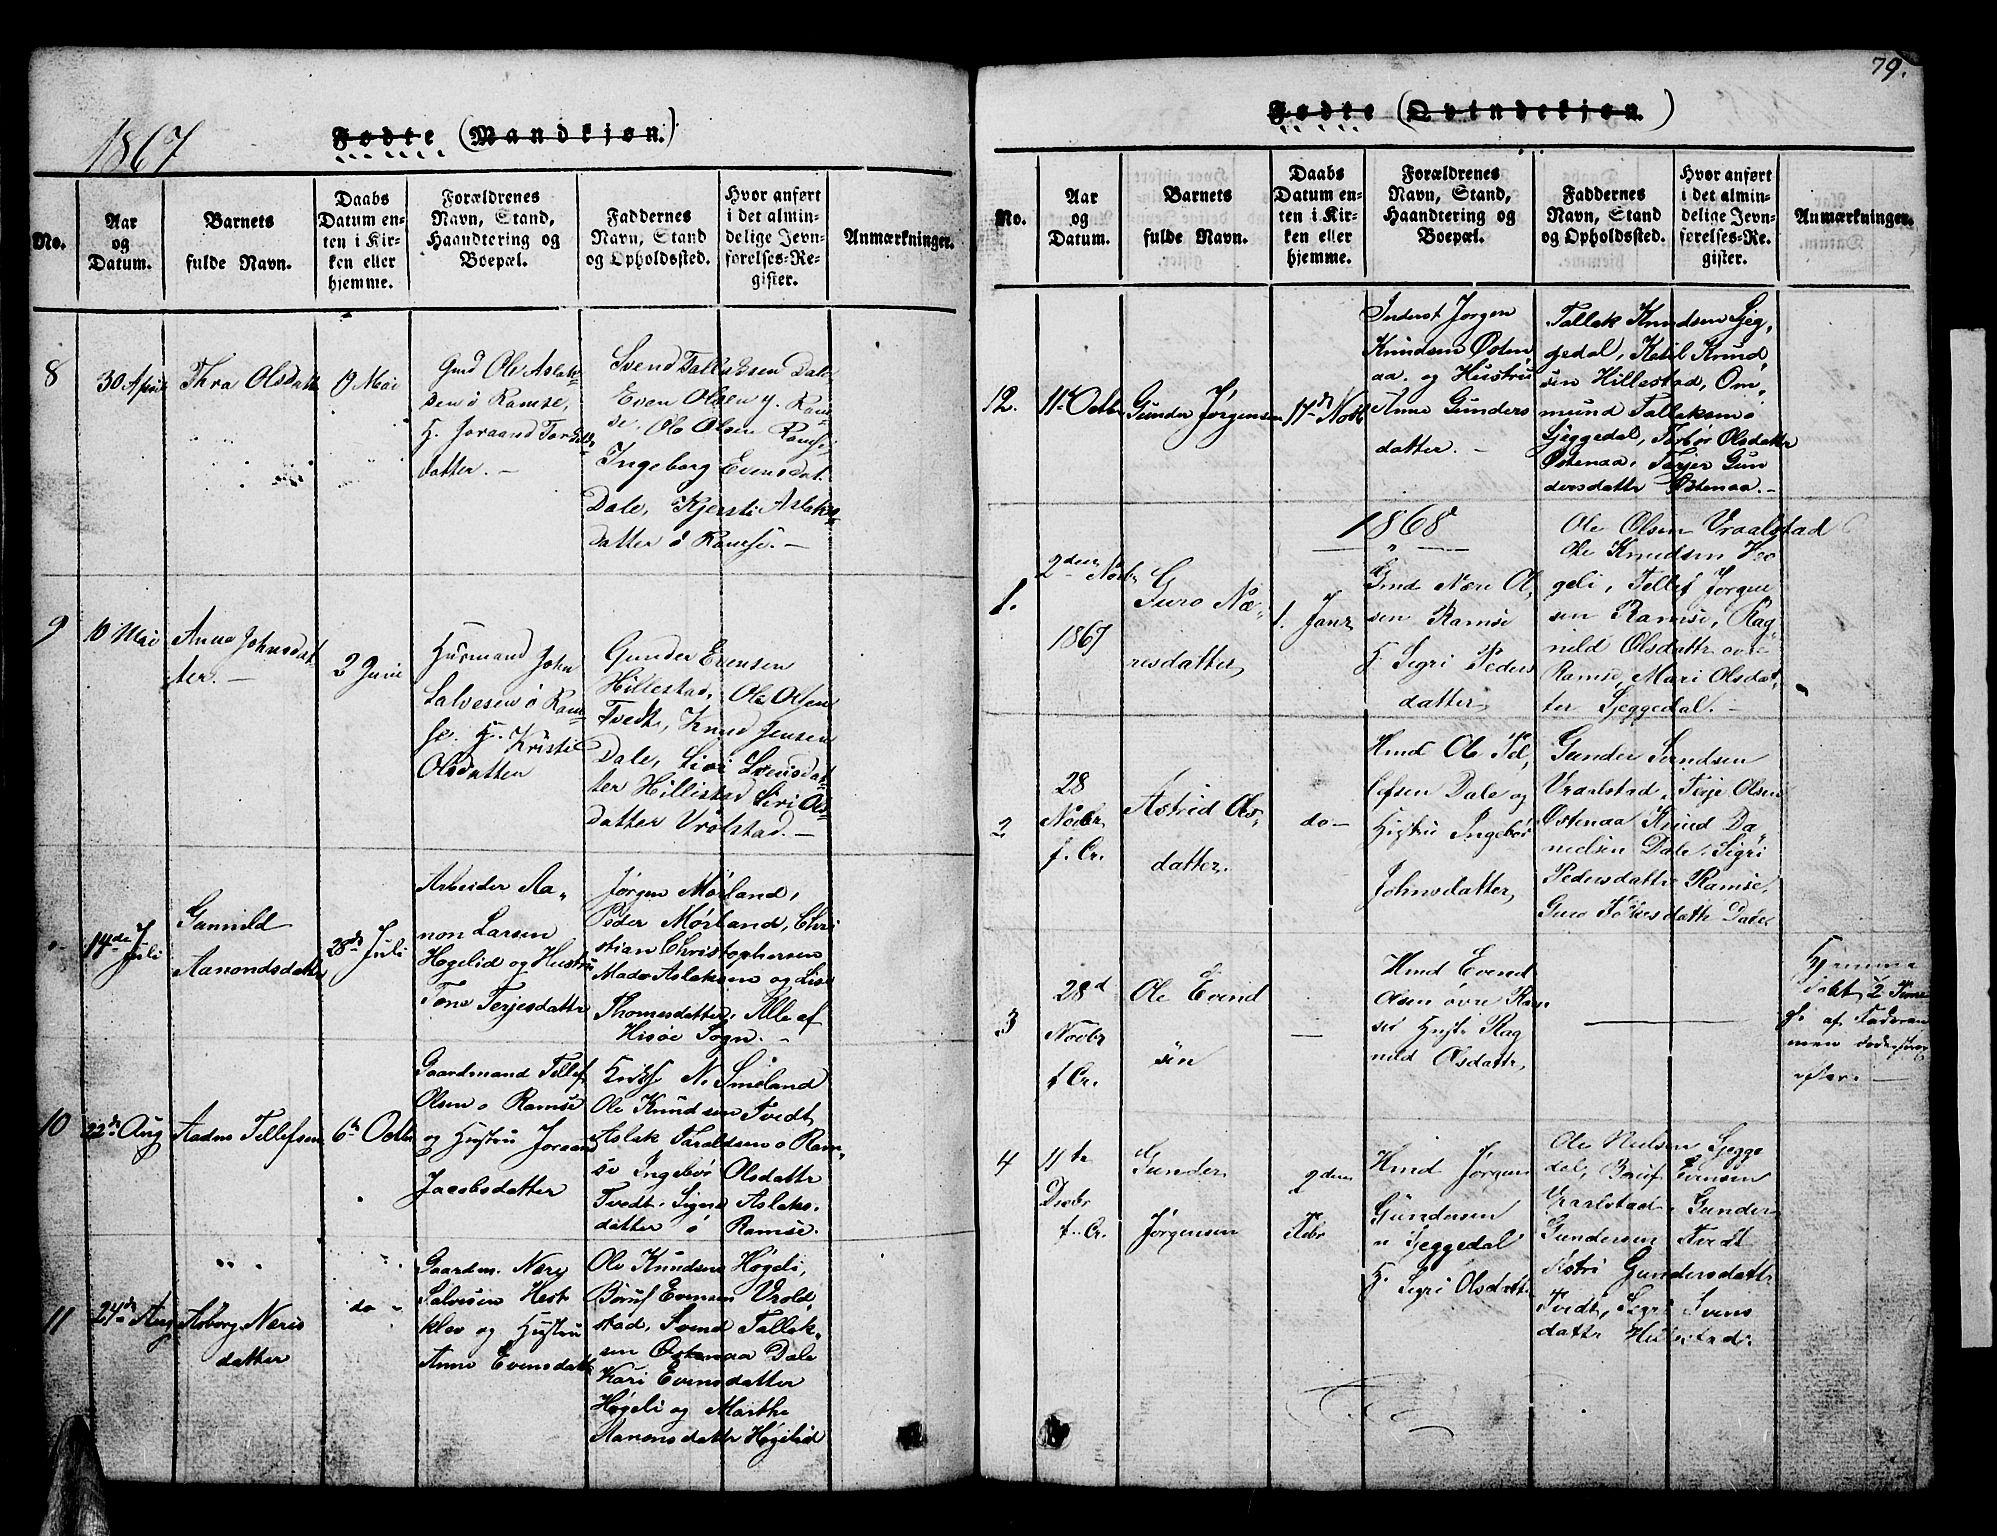 1867
Fødte (Mandkjøn.)
No.
Aar
og
Datum.
Barnets
fulde Navn.
Daabs
Datum en-
ten i Kir-
ken eller
hjemme.
Forældrenes
Navn, Stand,
Haandtering og
Boepæl.
Faddernes
Navn, Stand
og Opholdssted.
Hvor anført
i det almin-
delige Jevn-
førelses-Re-
gister.
Anmærkninger.
8
30 April
Thra Olsdatt
9 Mai
Gmd Ole Aslak-
sen ö Ramse,
H. Joraand Tarjeld
datter. -
Svend Tallaksen Dale
Even Olsen y. Ram-
se. Ole Olsen Ramse
Ingeborg Evensdat.
Dale, Kjersti Aslaks
datter ö Ramse. -
9
10 Mai
Anna Johnsdat-
ter. -
2 Juni
Husmand John
Salvesen ö Ram-
se. H. Kristi
Olsdatter
Gunder Evensen
Hillestad, Ole Olsen
Tvedt, Knud Jensen
Dale, Siri Svensdat-
ter Hillestad Siri Ols
datter Vrolstad. -
17de Juli
Gunnild
Aanondsdatter
28de Juli
Arbeider Aa-
non Larsen
Høgelid og Hustru
Tone Terjesdatter
Jørgen Mørland,
Peder Mørland, Chri
stian Christophersen
Mads Aslaksen og Lise
Thomesdatter, Alle af
Hisøe Sogn. -
10
22de Aug
Aadne Tellefsen
6te Octbr
Gaardmand Tellef
Olsen o Ramse
og Hustru Joraand
Jacobsdatter
N. Smeland
Ole Knudsen Tvedt,
Aslak Taraldsen o Ram-
se Ingebør Olsdatter
Tvedt, Signe Aslaks-
datter ö Ramse.
11
24de Aug
Asborg Næris
datter
do -
Gaardm. Næri
Salvesen Hest
klev og Hustru
Anne Evensdatt
Ole Knudsen Høgeli,
Børuf Evensen Vrold-
stad, Svend Tallak-
sen Ostenaa Dale
Kari Evensdatter
Høgeli og Marthe
Aanonsdatter Høgelid
79.
Fødte (Qvindekjøn.)
No.
Aar
og
Datum.
Barnets
fulde Navn.
Daabs
Datum en-
ten i Kir-
ken eller
hjemme.
Forældrenes
Navn, Stand,
Haandtering og
Boepæl.
Faddernes
Navn, Stand
og Opholdssted.
Hvor anført
i det almin-
delige Jevn-
førelses-Re-
gister.
Anmærkninger.
12.
11te Octbr
Gunder Jørgensen
17de Novbr
Inderst Jørgen
Knudsen Østen-
aa. og Hustru
Anne Gunders
datter. -
Tallak Knudsen Ljeg-
gedal, Ketil Knud-
sen Hillestad, Om-
mund Tallaksen
Ljeggedal, Torbør Olsdatter
Østenaa, Tarjer Gun
dersdattr Østenaa. -
1868
1.
2den Novbr
1867
Guro Næ-
risdatter,
1. Janr
Gmd Næri Ol
sen Ramse
H. Sigri Peders
datter
Ole Olsen Vraalstad
Ole Knudsen Hø
geli, Tellef Jørgen
sen Ramse, Rag-
nild Olsdattr øvre
Ramse, Mari Olsdat-
ter Ljeggedal. -
2
28
Novbr
f. Cr.
Astrid Ols-
datter.
do -
Hmd Ole Tel-
lefsen Dale og
Hustru Ingebør
Johnsdatter,
Gunder Svendsen
Vraalstad, Terje Olsen
Østenaa Knud Da-
nielsen Dale, Sigri
Pedersdattr Ramse,
Guro dattr Dale
3
28d
Novbr
f. Cr.
Ole Evind
sen
-
Hmd Evend
Olsen øvre Ram
se Hustr Rag
nild Olsdattr,
Hjemme
døbt
af Faderen
men
efter. -
4
11te
Decbr
f. Cr.
Gunder
Jørgensen
2den
Febr
Hmd Jørgen
Gundersen
Ljeggedal
H. Sigri Olsdattr
Ole Nielsen Ljegge
dal, Børuf Evensen
Vraalstad, Gunder
Gundersen Tvedt
Astri Gundersdattr
Tvedt, Sigri Svens
dattr Hillestad.